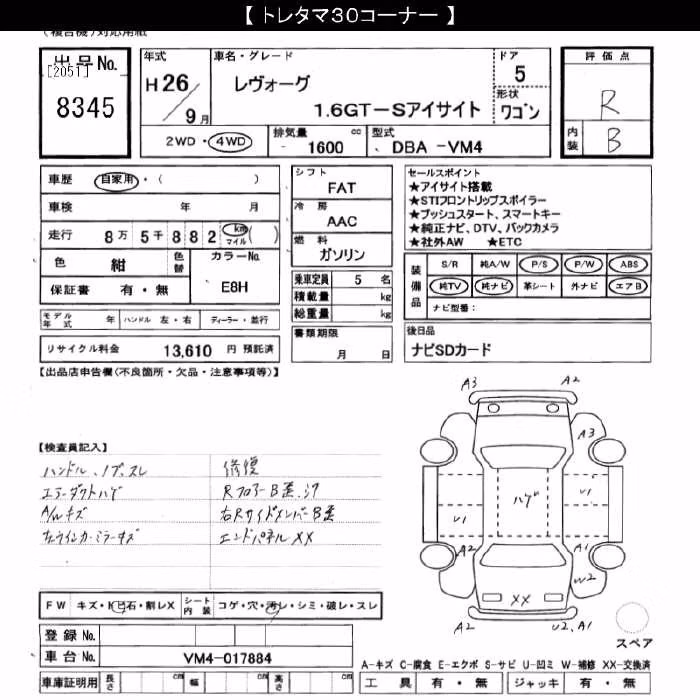 【 トレタマ30コーナー 】
(複合機)対応用紙
出品No.
[2051]
8345
年式
H26/9月
車名・グレード
レヴォーグ
1.6GT-Sアイサイト
ドア
5
形状
ワゴン
2WD・4WD
排気量 cc
1600
型式
DBA -VM4
評価点
R
内装
B
車歴 自家用・( )
車検 年 月
走行 8万5千882 km マイル ( )
色 紺 色替
カラーNo.
E8H
保証書 有・無
シフト
FAT
冷房
AAC
燃料
ガソリン
乗車定員 5 名
積載量 kg
総重量 kg
セールスポイント
★アイサイト搭載
★STIフロントリップスポイラー
★プッシュスタート、スマートキー
★純正ナビ、DTV、バックカメラ
★社外AW ★ETC
装備品
S/R 純A/W P/S P/W ABS
純TV 純ナビ 革シート 外ナビ エアB
ナビ型番:
モデル年式 年 ハンドル 左・右 ディーラー・並行
リサイクル料金 13,610 円 預託済
書類期限
月 日
後日品
ナビSDカード
【出品店申告欄(不良箇所・欠品・注意事項等)】
【検査員記入】
ハンドル、ノブ、スレ
エアーダクトハゲ
A/Wキズ
修復
RフロアーB歪、サ
右RサイドメンバーB歪
エンドパネルXX
A3 A2
A3
ハゲ
U1 U1
A2 A1
W2
XX
A2 U2、A1
スペア
FW キズ・飛石・割レX
シート内装 コゲ・穴・汚レ・シミ・破レ・スレ
登録No.
車台No. VM4-017884
車庫証明用 長さ cm 幅 cm 高さ cm
A-キズ C-腐食 E-エクボ S-サビ U-凹ミ W-補修 XX-交換済
工具 有・無 ジャッキ 有・無